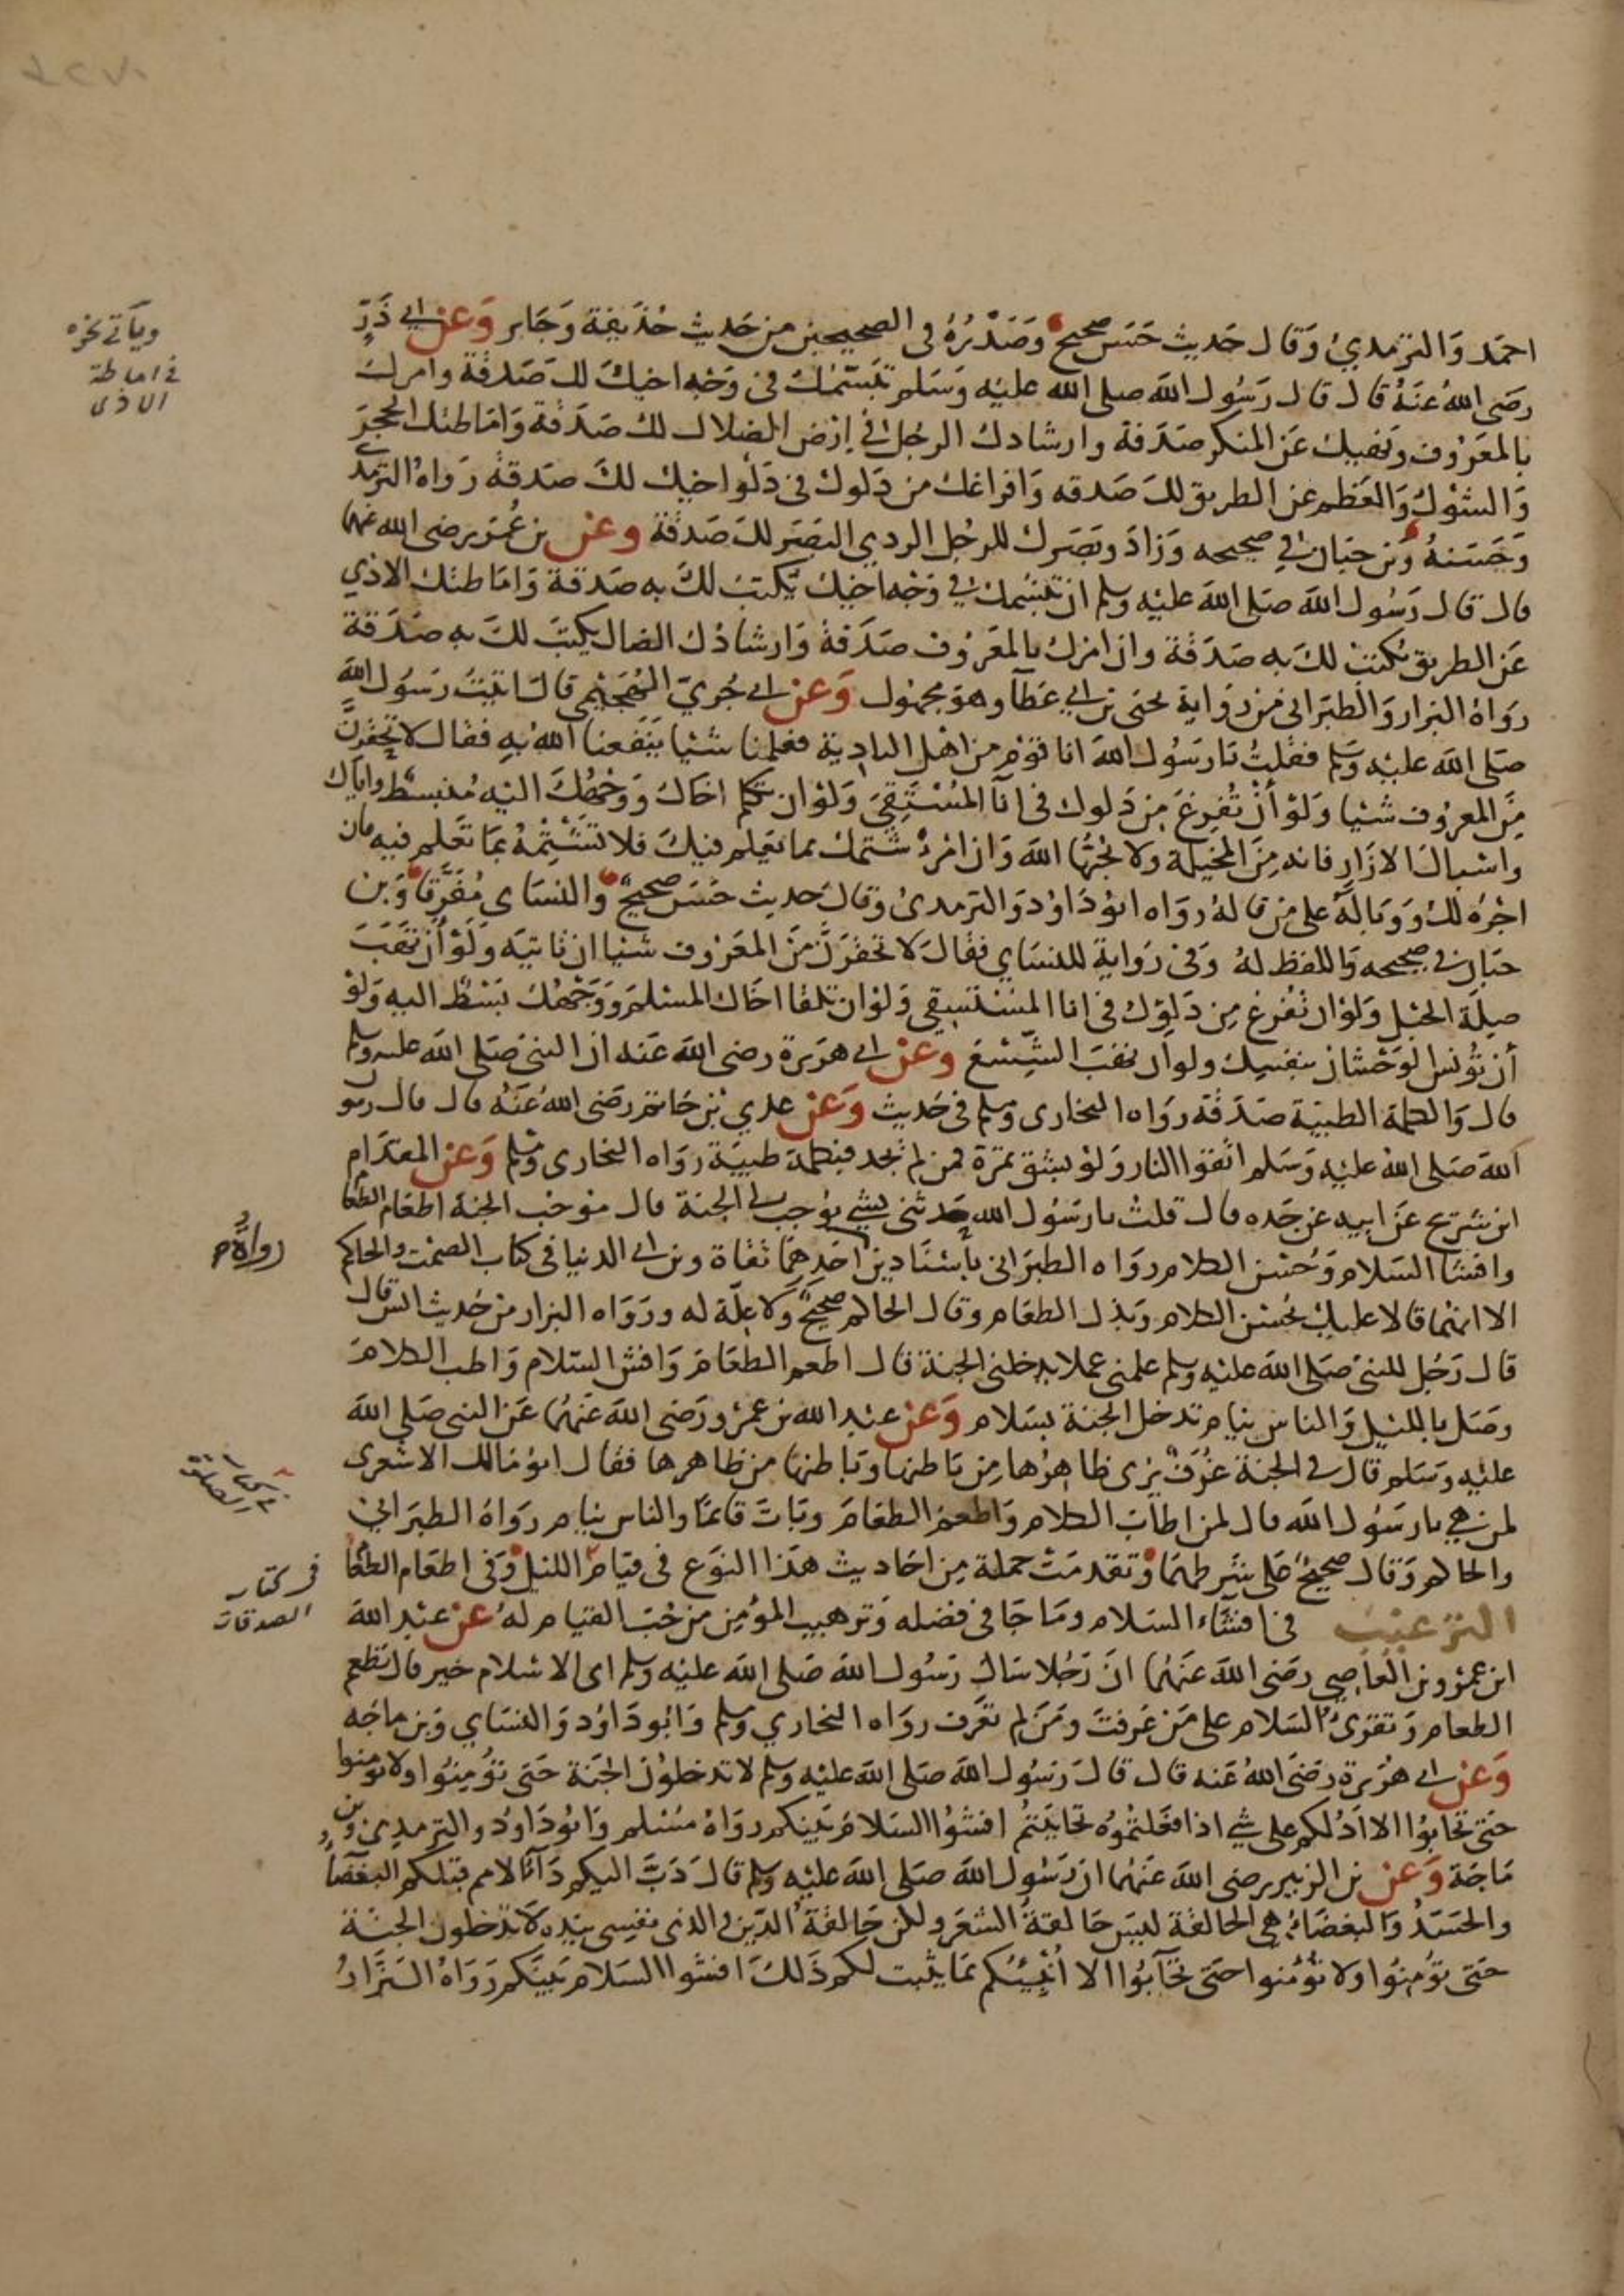 احمد والترمدي وقال حديث حسن صحيح وصدره في الصحيحين من حديث حذيفة وجابر وعن ابي ذر
رضي الله عنه قال قال رسول الله صلى الله عليه وسلم تبسمك في وجه اخيك لك صدقة وامرك
بالمعروف ونهيك عن المنكر صدقة وارشادك الرجل في ارض الضلال لك صدقة واماطتك الحجر
والشوك والعظم عن الطريق لك صدقه وافراغك من دلوك في دلو اخيك لك صدقة رواه الترمدي
وحسنه وبن حبان في صحيحه وزاد وبصرك للرجل الردي البصر لك صدقة وعن بن عمر رضي الله عنهما
قال قال رسول الله صلى الله عليه وسلم ان تبسمك في وجه اخيك يكتب لك به صدقة واماطتك الاذي
عن الطريق يكتب لك به صدقة وان امرك بالمعروف صدقة وارشادك الضال يكتب لك به صدقة
رواه البزار والطبراني من رواية يحيى بن ابي عطا وهو مجهول وعن ابي جري الهجيمي قال اتيت رسول الله
صلى الله عليه وسلم فقلت يا رسول الله انا قوم من اهل البادية فعلمنا شيا ينفعنا الله به فقال لا تحقرن
من المعروف شيا ولو أن تفرغ من دلوك في انآ المستسقي ولو ان تكلم اخاك ووجهك اليه منبسط واياك
واسبال الازار فانه من المخيلة ولا يحبها الله وان امرؤ شتمك بما يعلم فيك فلا تشتمه بما تعلم فيه فان
اجره لك ووباله على من قاله رواه ابو داود والترمدي وقال حديث حسن صحيح والنساي مفرقا وبن
حبان في صحيحه واللفظ له وفي رواية للنساي فقال لا تحقرن من المعروف شيا ان تاتيه ولو أن تهب
صلة الحبل ولو ان تفرغ من دلوك في انا المستسقي ولو ان تلقا اخاك المسلم ووجهك بسط اليه ولو
أن تونس الوحشان بنفسك ولو ان تهب الشسع وعن ابي هريرة رضي الله عنه ان النبي صلى الله عليه وسلم
قال والكلمة الطيبة صدقة رواه البخاري ومسلم في حديث وعن عدي بن حاتم رضي الله عنه قال قال رسول
الله صلى الله عليه وسلم اتقوا النار ولو بشق تمرة فمن لم يجد فبكلمة طيبة رواه البخاري ومسلم وعن المقدام
ابن شريح عن ابيه عن جده قال قلت يا رسول الله حدثني بشي يوجب لي الجنة قال موجب الجنة اطعام الطعام
وافشا السلام وحسن الكلام رواه الطبراني باسنادين احدهما ثقاة وبن ابي الدنيا في كتاب الصمت والحاكم
الا انهما قالا عليك بحسن الكلام وبذل الطعام وقال الحاكم صحيح ولا علة له ورواه البزار من حديث انس قال
قال رجل للنبي صلى الله عليه وسلم علمني عملا يدخلني الجنة قال اطعم الطعام وافش السلام واطب الكلام
وصل بالليل والناس نيام تدخل الجنة بسلام وعن عبد الله بن عمرو رضي الله عنهما عن النبي صلى الله
عليه وسلم قال في الجنة غرف يرى ظاهرها من باطنها وباطنها من ظاهرها فقال ابو مالك الاشعري
لمن هي يا رسول الله قال لمن اطاب الكلام واطعم الطعام وبات قائما والناس نيام رواه الطبراني
والحاكم وقال صحيح على شرطهما وتقدمت جملة من احاديث هذا النوع في قيام الليل وفي اطعام الطعام
الترغيب في افشاء السلام وما جا في فضله وترهيب المؤمن من حب القيام له عن عبد الله
ابن عمرو بن العاصي رضي الله عنهما ان رجلا سال رسول الله صلى الله عليه وسلم اي الاسلام خير قال تطعم
الطعام وتقرئ السلام على من عرفت ومن لم تعرف رواه البخاري ومسلم وابو داود والنساي وبن ماجه
وعن ابي هريرة رضي الله عنه قال قال رسول الله صلى الله عليه وسلم لا تدخلون الجنة حتى تؤمنوا ولا تومنوا
حتى تحابوا الا ادلكم على شي اذا فعلتموه تحاببتم افشوا السلام بينكم رواه مسلم وابو داود والترمدي وبن
ماجة وعن بن الزبير رضي الله عنهما ان رسول الله صلى الله عليه وسلم قال دب اليكم دآء الامم قبلكم البغضآ
والحسد والبغضاء هي الحالقة ليس حالقة الشعر ولكن حالقة الدين والذي نفسي بيده لا تدخلون الجنة
حتى تومنوا ولا تؤمنوا حتى تحآبوا الا أنبئكم بما يثبت لكم ذلك افشوا السلام بينكم رواه البزار
وياتي نحوه
في اماطة
الاذى
رواة
في كتاب
الصدقات